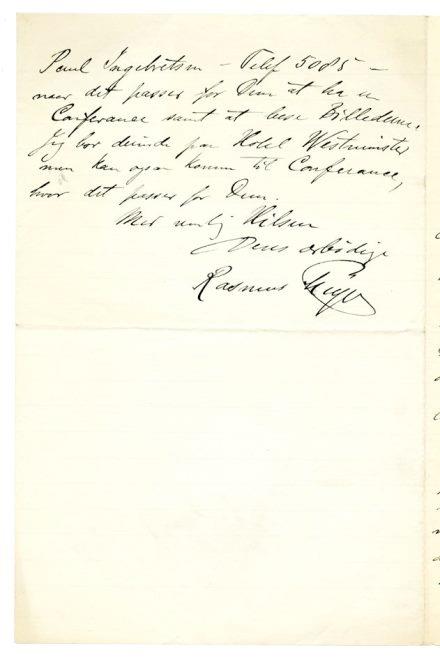 Paul Ingebretsen – Telef 5085 –
naar det passer for Dem at ha en
Conferance samt at bese Billederne.
Jeg bor derinde paa Hotel Westminster
men kan ogsaa komme til Conferance,
hvor det passer for Dem.
Med venlig Hilsen
Deres ærbødige
Rasmus Meyer